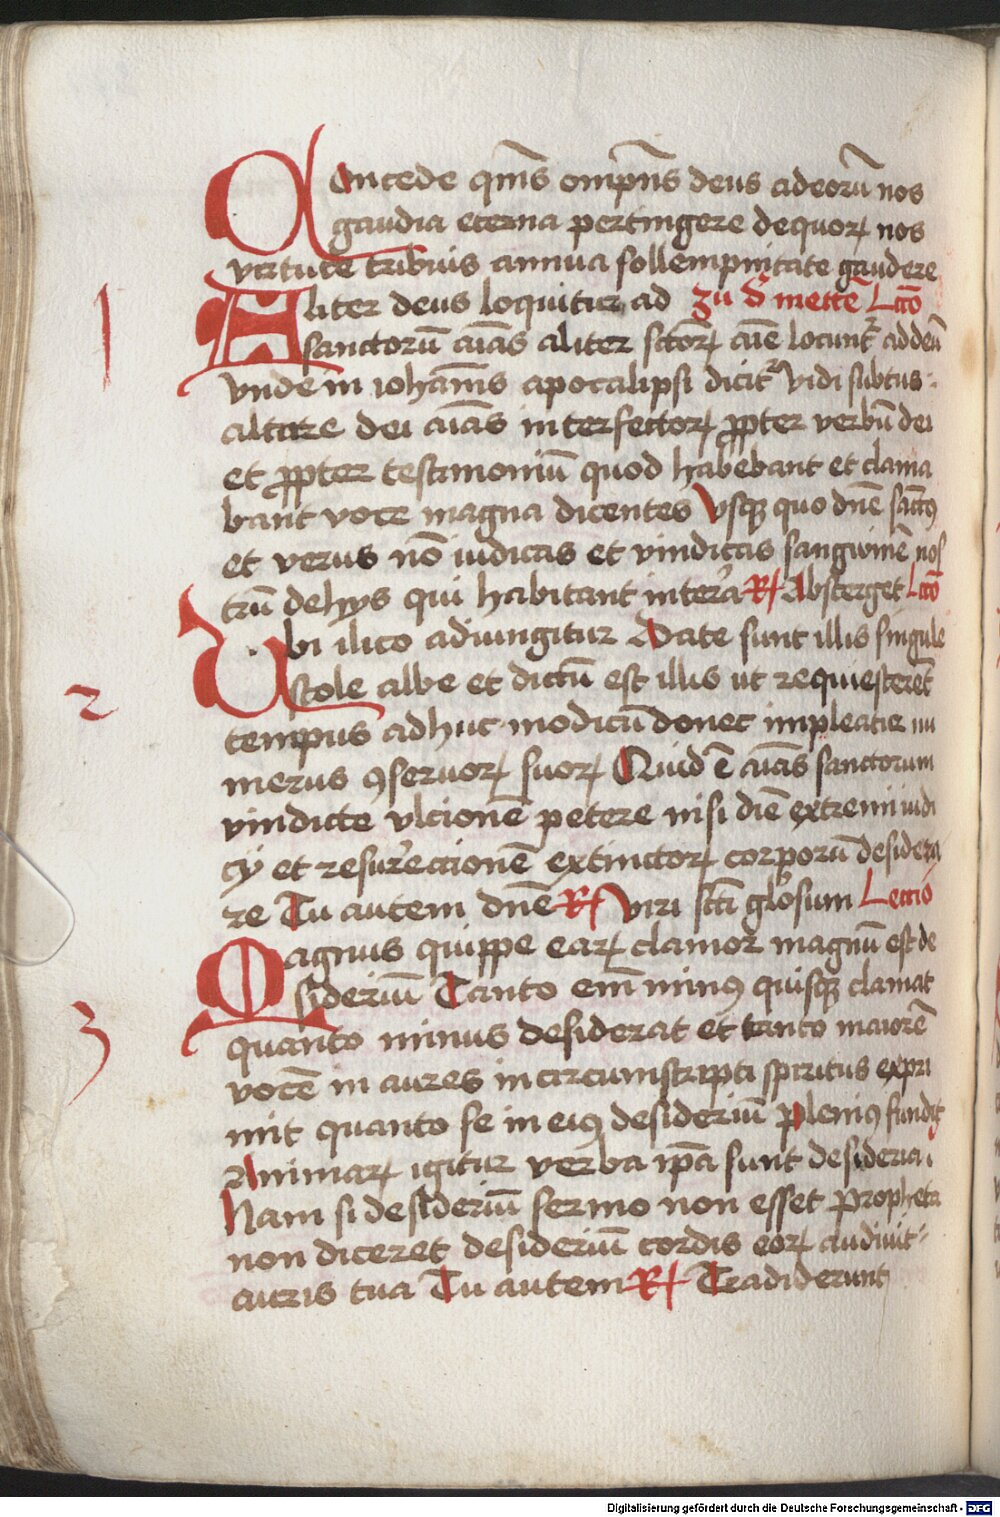 Concede qm̄s omp̄ns deus adeorū nos
gaudia eterna pertingere dequoꝝ nos
virtute tribuis annua sollempnitate gaudere
Aliter deus loquitur ad zu d' mettē Lc̄o
1
sanctorū aīas aliter sc̄oꝝ aīe locunt᷑ addeū
vnde in iohānis apocalipsi dicit᷑ Vidi subtus
altare dei aīas interfectoꝝ ꝓpter verbū dei
et ꝓpter testimoniū quod habebant et clama
bant voce magna dicentes Vsqꝫ quo dn̄e sāctꝰ
et verus nō iudicas et vindicas sangwinē nos
trū dehys qui habitant inter̄a R/ Absterget Lc̄o
Vbi ilico adiungitur Date sunt illis singule
2
stole albe et dictū est illis ut requiesceret̄
tempus adhuc modicū donec impleatur nu
merus ꝯseruoꝝ suoꝝ Quid ē aīas sanctorum
vindicte vlcionē petere nisi diē extremi iudi
cÿ et resur̄ectionē extinctoꝝ corporū desidera
re Tu autem dn̄e R/ Viri sc̄ti glōsum Lectio
Magnus quippe eaꝝ clamor magnū est de
sideriū Tanto em̄ minꝰ quisqꝫ clamat
3
quanto minus desiderat et tanto maiorē
vocē in aures incircumscripti spiritus expri
mit quanto se in eiꝰ desideriū plenius fundit
Animaꝝ igitur verba ip̄a sunt desideria
Nam si desideriū sermo non esset Propheta
non diceret desideriū cordis eoꝝ audiuit
auris tua Tu autem R/ Tradiderunt
Digitalisierung gefördert durch die Deutsche Forschungsgemeinschaft - DFG